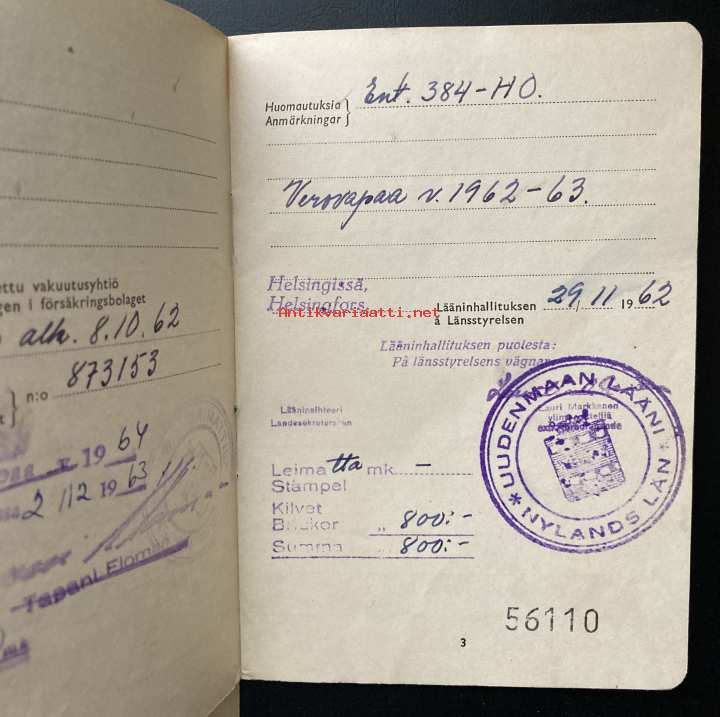 ettu vakuutusyhtiö
gen i försäkringsbolaget
alk. 8.10.62
n:o 873153
1964
2/12 1963
Tapani
Huomautuksia
Anmärkningar
Ent. 384-HO.
Verovapaa v. 1962-63.
Helsingissä,
Helsingfors,
Antikvariaatti.net
Lääninhallituksen
å Länsstyrelsen
29/11 1962
Lääninhallituksen puolesta:
På länsstyrelsens vägnar
Lauri Markkanen
UUDENMAAN LÄÄNI
NYLANDS LÄN
Lääninsihteeri
Landssekreteraren
Leimatta mk. –
Stämpel
Kilvet
Brickor „ 800:-
Summa „ 800:-
56110
3